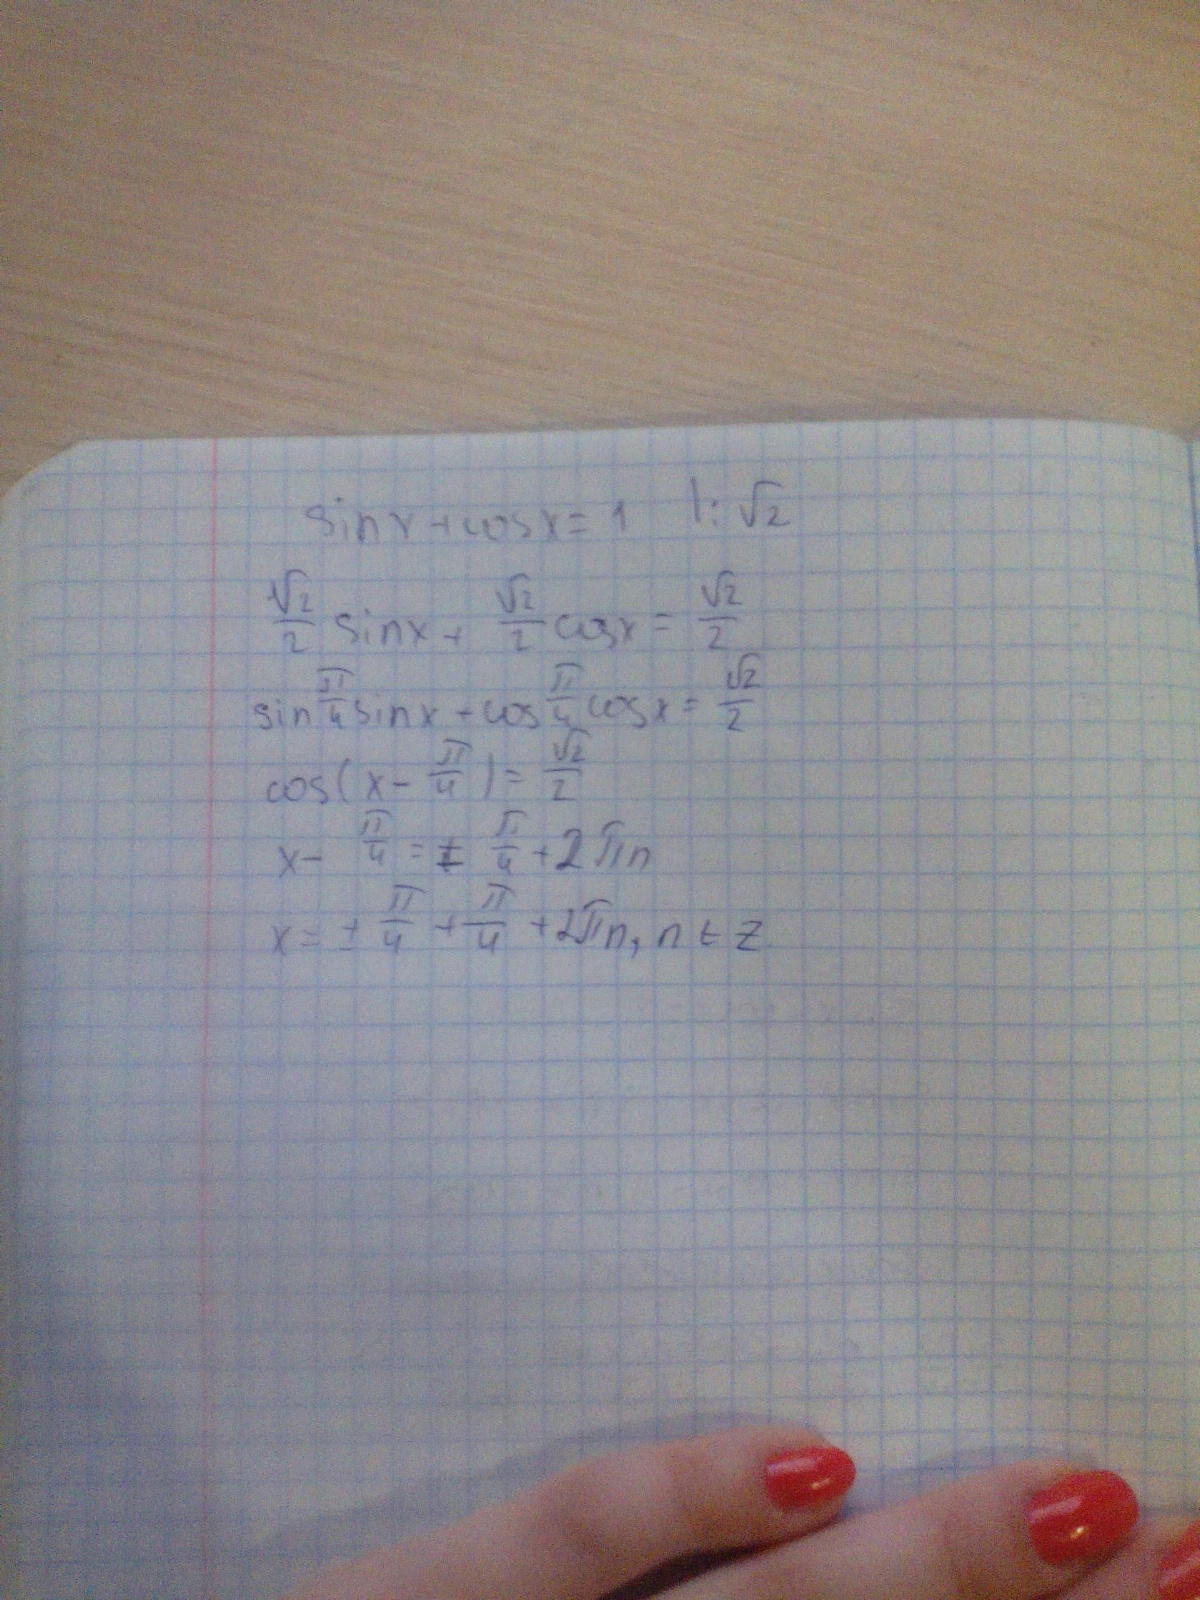 sinx+cosx=1 |:√2
√2/2 sinx+ √2/2 cosx= √2/2
sin π/4 sinx+cos π/4 cosx= √2/2
cos(x- π/4)= √2/2
x- π/4 =± π/4 +2πn
x=± π/4 + π/4 +2πn, n ∈ Z